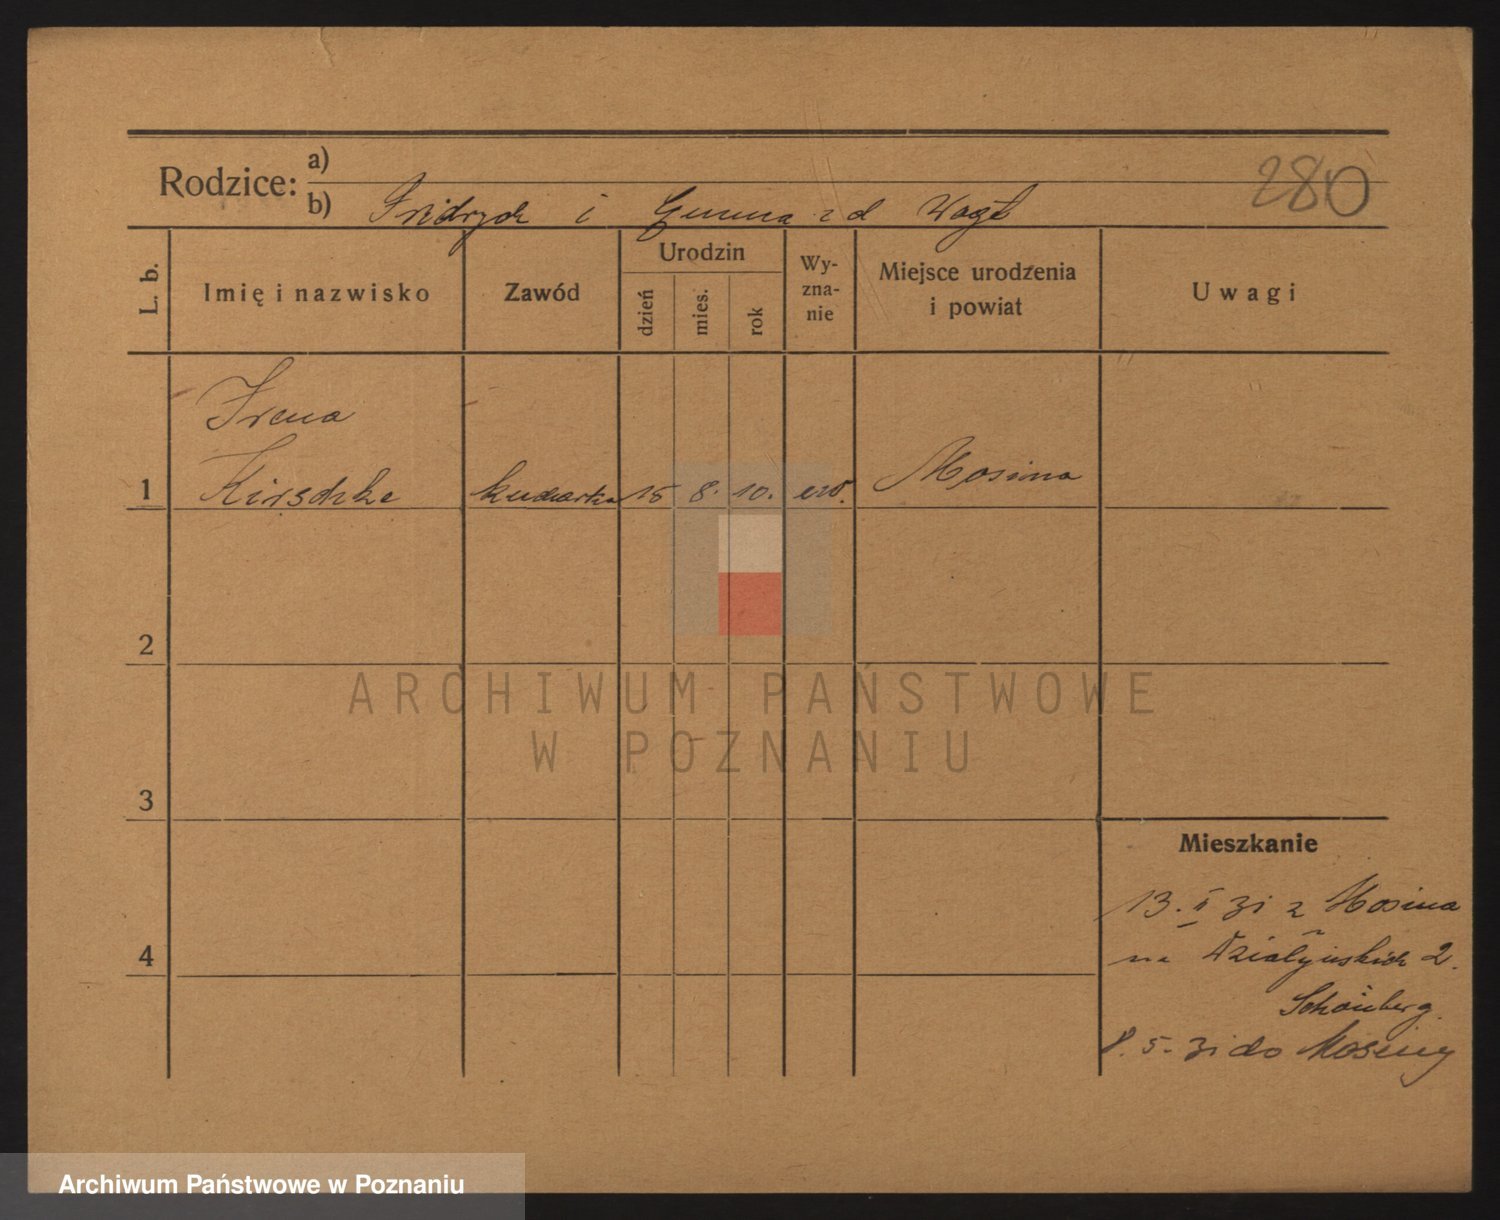 280
Rodzice: a)
b) Fridrych i Emma z d Vogt
L. b.
Imię i nazwisko
Zawód
Urodzin
dzień
mies.
rok
Wy-
zna-
nie
Miejsce urodzenia
i powiat
Uwagi
Irena
1 Kirschke kucharka 15 8. 10. ew. Mosina
2
ARCHIWUM PAŃSTWOWE
W POZNANIU
3
Mieszkanie
13. II 31 z Mosina
4 na Działyńskich 2.
Schönberg.
8. 5. 31 do Mosiny
Archiwum Państwowe w Poznaniu